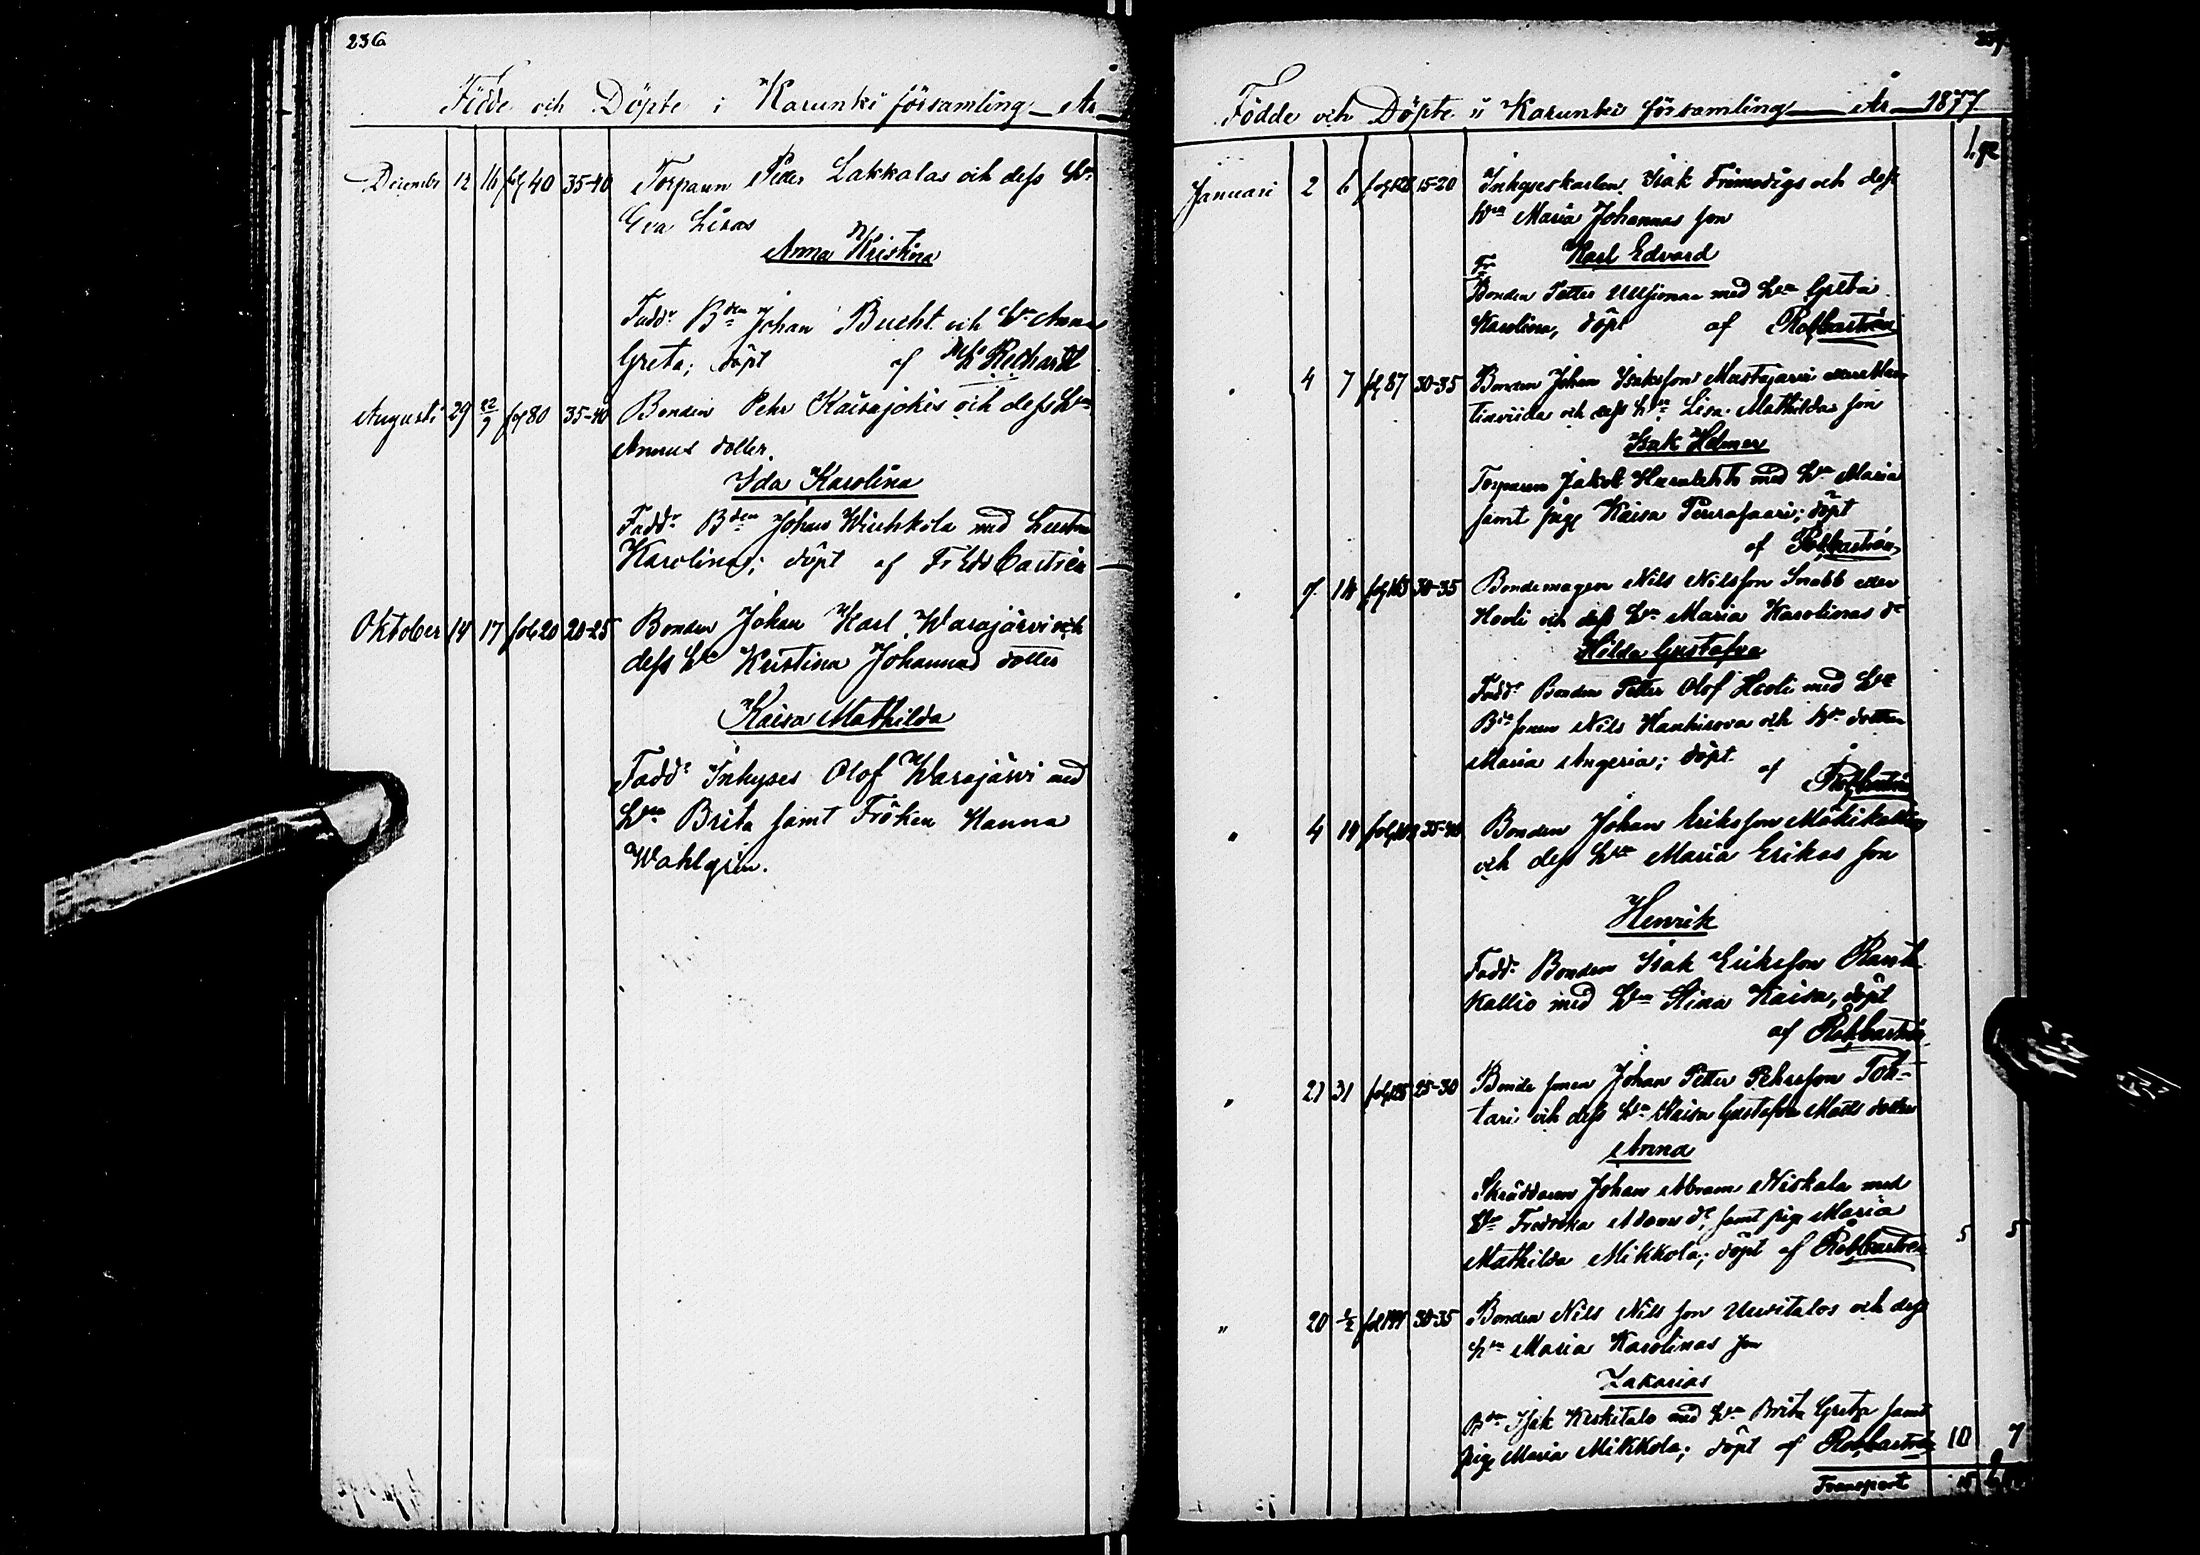 236
Födde och Döpte i Karunki församling År
December 12 16 fol 40 35-40 Torparen Peter Lakkalas och dess h.
Eva Lisas
Anna Kristina
Fadd. Bden Johan Bucht och h. Anna
Greta; döpt af
Augusti 29 22/9 fol 80 35-40 Bonden Pehr Kaisajokis och dess hu
Annas dotter.
Ida Karolina
Fadd. Bden Johan Wiehkola med hustru
Karolina; döpt af Fr Edv Castrén
Oktober 14 17 fol 20 20-25 Bonden Johan Karl Warajärvi och
dess hu Kristina Johannas dotter
Kaisa Mathilda
Fadd. Inhyses Olof Warajärvi med
hun Brita samt Fröken Hanna
Wahlgren.
Födde och Döpte i Karunki församling År 1877
Januari 2 6 fol 128 15-20 Inhyseskarlen Isak Frimodigs och dess
hun Maria Johannas son
Karl Edvard
Fr
Bonden Petter med hun Greta
Karolina, döpt af Rob Castrén
4 7 fol 87 30-35 Bonden Johan Isaksson Mustajärvi eller
och dess hun Lisa Mathildas son
Isak Helmer
Torparen Jakob med hun Maria
samt pige Kaisa; döpt
af Rob Castrén
7 14 fol 163 30-35 Bondemågen Nils Nilsson Snabb eller
Hooli och dess hun Maria Karolinas dr
Hilda Gustafva
Fadd. Bonden Petter Olof Hooli med hu
Bdesonen Nils och Bde dottern
Maria Angeria; döpt af Rob Castrén
" 4 14 35-40 Bonden Johan Eriksson Mäkikallios
och dess hun Maria Erikas son
Henrik
Fadd. Bonden Isak Eriksson
kallio med hun Stina Kaisa, döpt
af Rob Castrén
" 21 31 fol 125 25-30 Bonde sonen Johan Petter Pehrsson Tok-
tari och dess hu Kaisa Gustafva Mats dotter
Anna
Skräddaren Johan Abram Niskala med
hu Fredrika Adams dr, samt pige Maria
Mathilda Mikkola; döpt af Rob Castrén 5 5
" 20 1/2 fol 144 30-35 Bonden Nils Nils son Uusitalos och dess
hun Maria Karolinas son
Zakarias
Bdn Isak Keskitalo med hun Brita Greta samt
pige Maria Mikkola; döpt af Rob Castrén 10 7
Transport 15